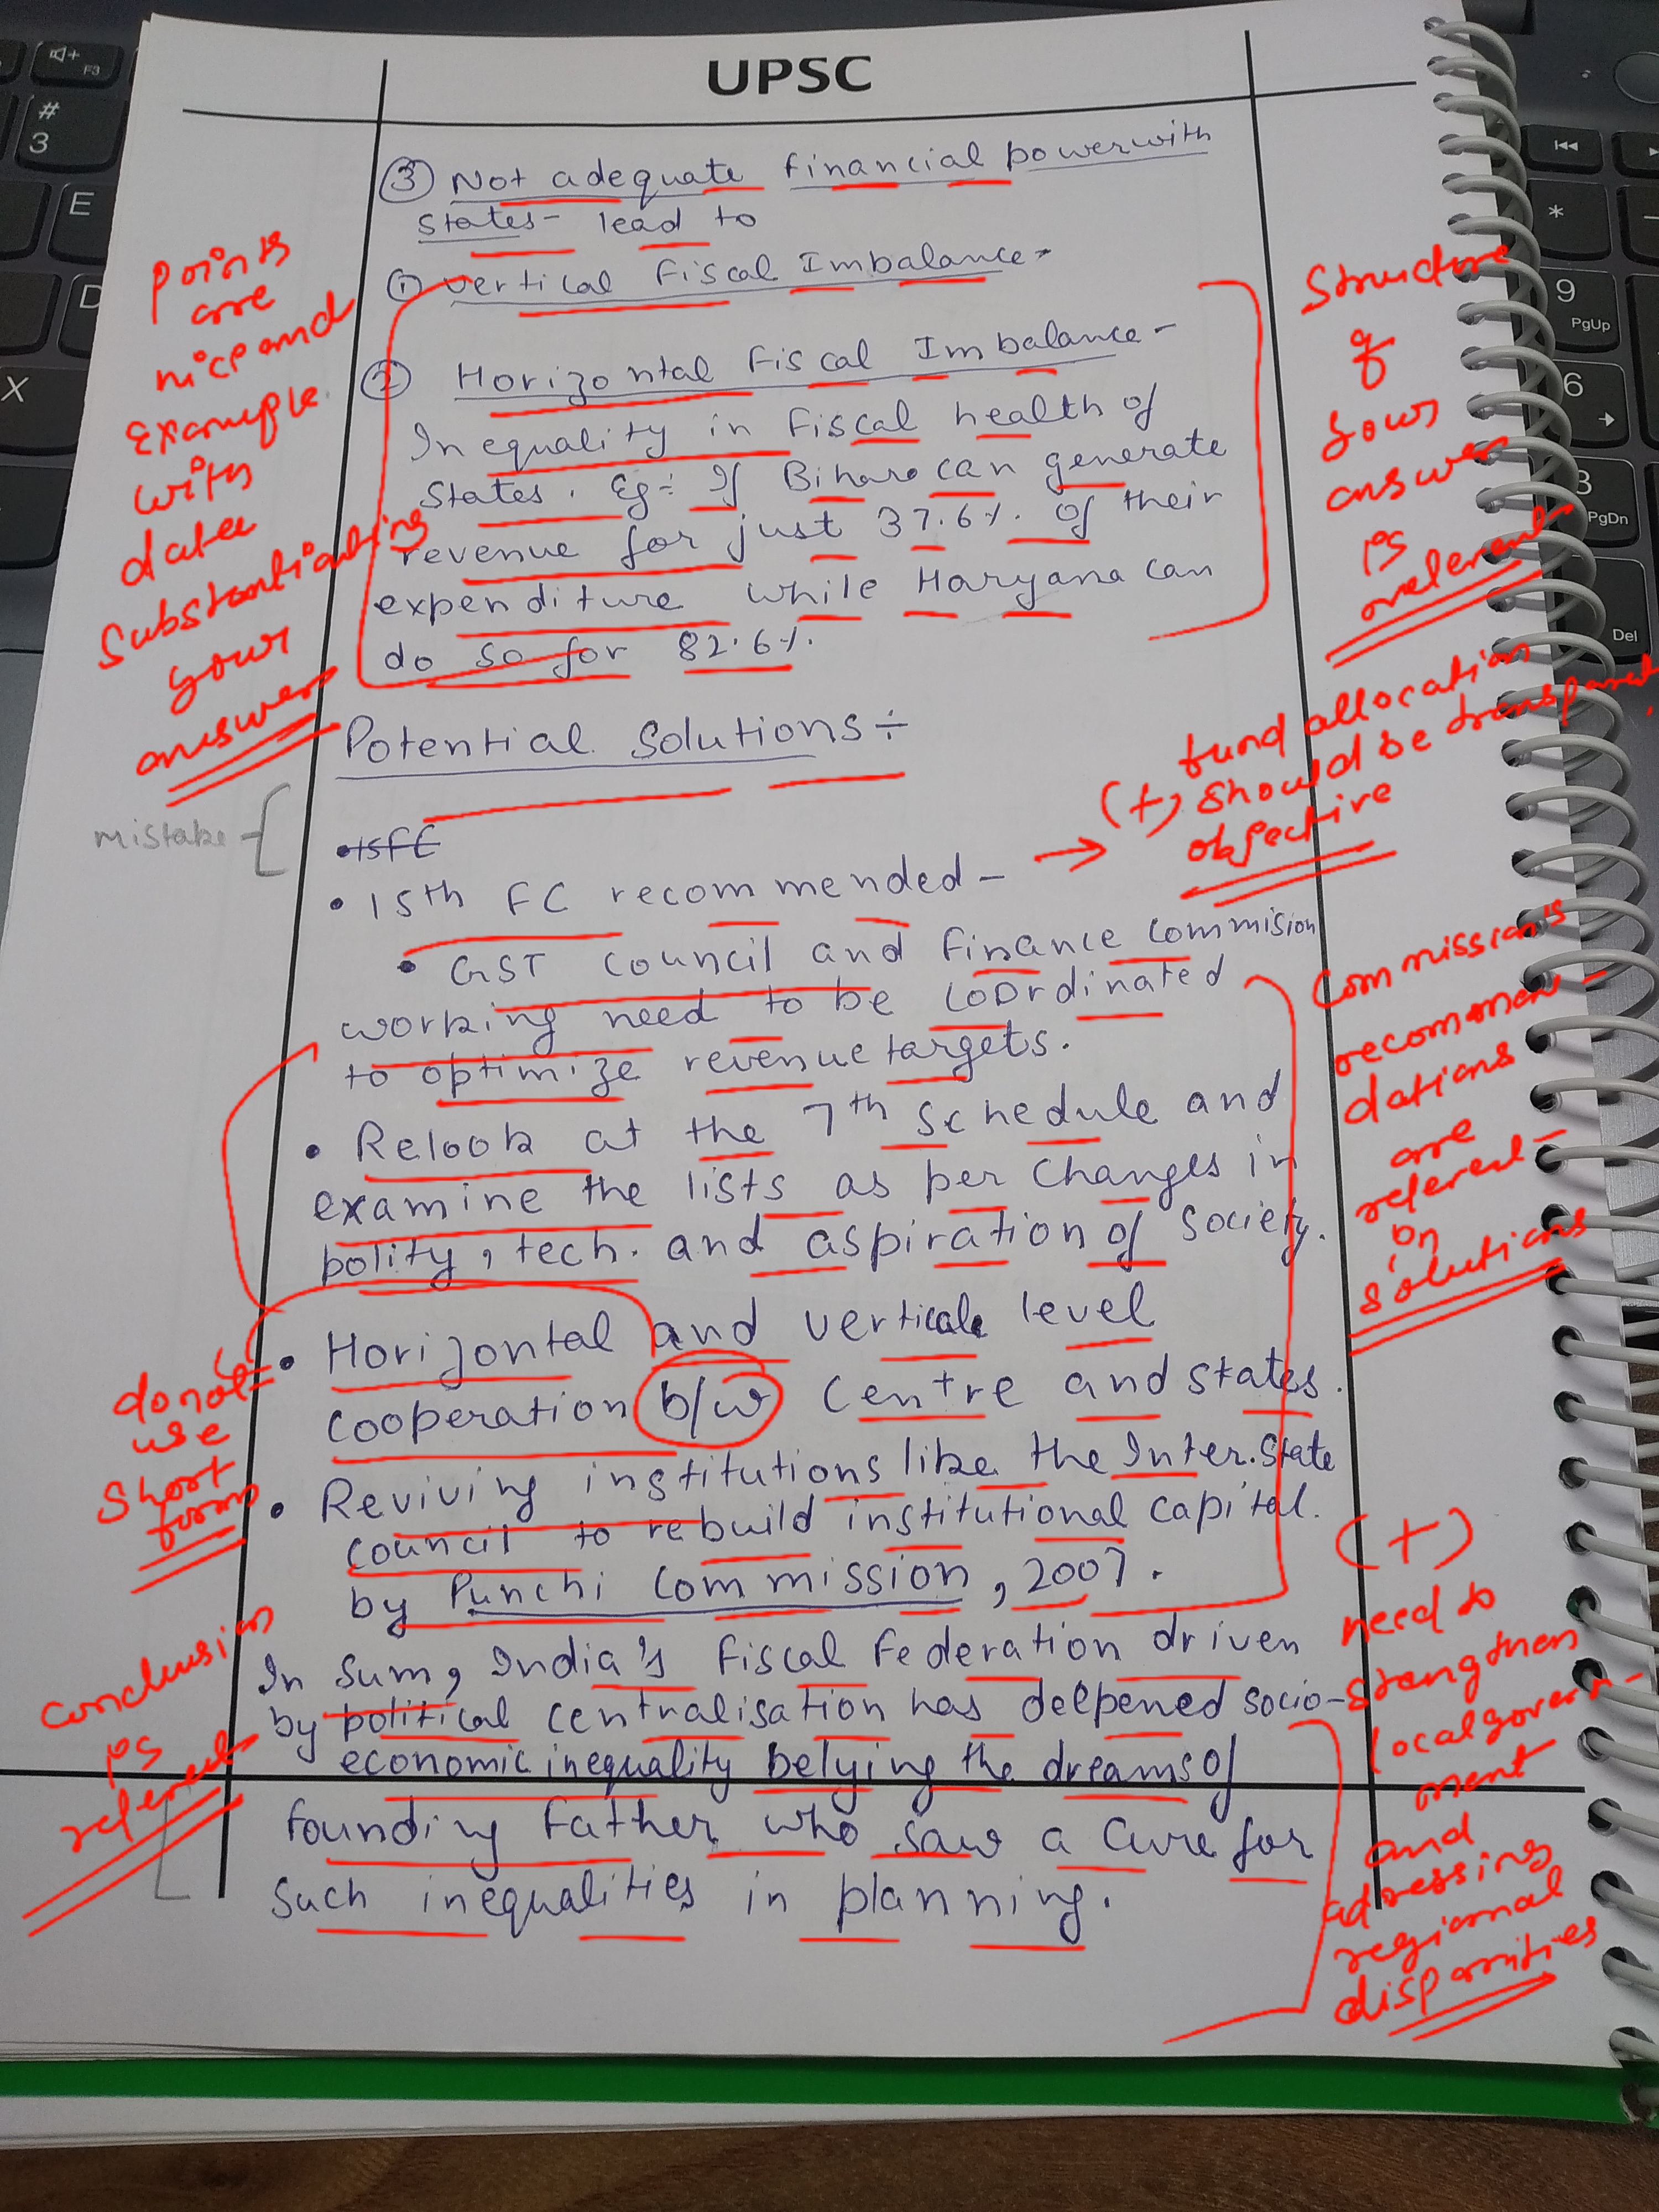 UPSC
③ Not adequate financial power with
states- lead to
① Vertical Fiscal Imbalance-
② Horizontal Fiscal Imbalance-
Inequality in Fiscal health of
States. Eg:- If Bihar can generate
revenue for just 37.6%. of their
expenditure while Haryana can
do so for 82.6%.
Potential Solutions÷
• 15FC
• 15th FC recommended-
• GST Council and Finance Commision
working need to be coordinated
to optimize revenue targets.
• Relook at the 7th Schedule and
examine the lists as per Changes in
polity, tech. and aspiration of society.
• Horizontal and vertical level
cooperation b/w Centre and states.
• Reviving institutions like the Inter.State
Council to rebuild institutional capital.
by Punchi Commission, 2007.
In sum, India's Fiscal Federation driven
by political centralisation has deepened socio-
economic inequality belying the dreams of
founding Father who saw a cure for
such inequalities in planning.
Points
are
nice and
Example
with
data
Substantiating
your
answer
mistake
do not
use
Short
forms
conclusion
is
relevant
Structure
of
your
answer
is
relevant
(+) fund allocation
should be transparent
objective
Commission's
recommen-
dations
are
relevant
in
solutions
(+)
need to
strengthen
local govern-
ment
and
adressing
regional
disparities
F3
#
3
E
D
X
*
9
PgUp
6
3
PgDn
Del